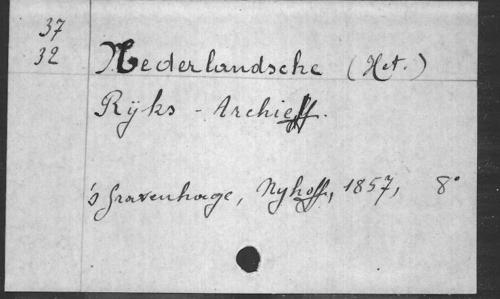 37
32 Nederlandsche (Het.)
Rÿks - Archieff.
's Gravenhage, Nyhoff, 1857, 8°